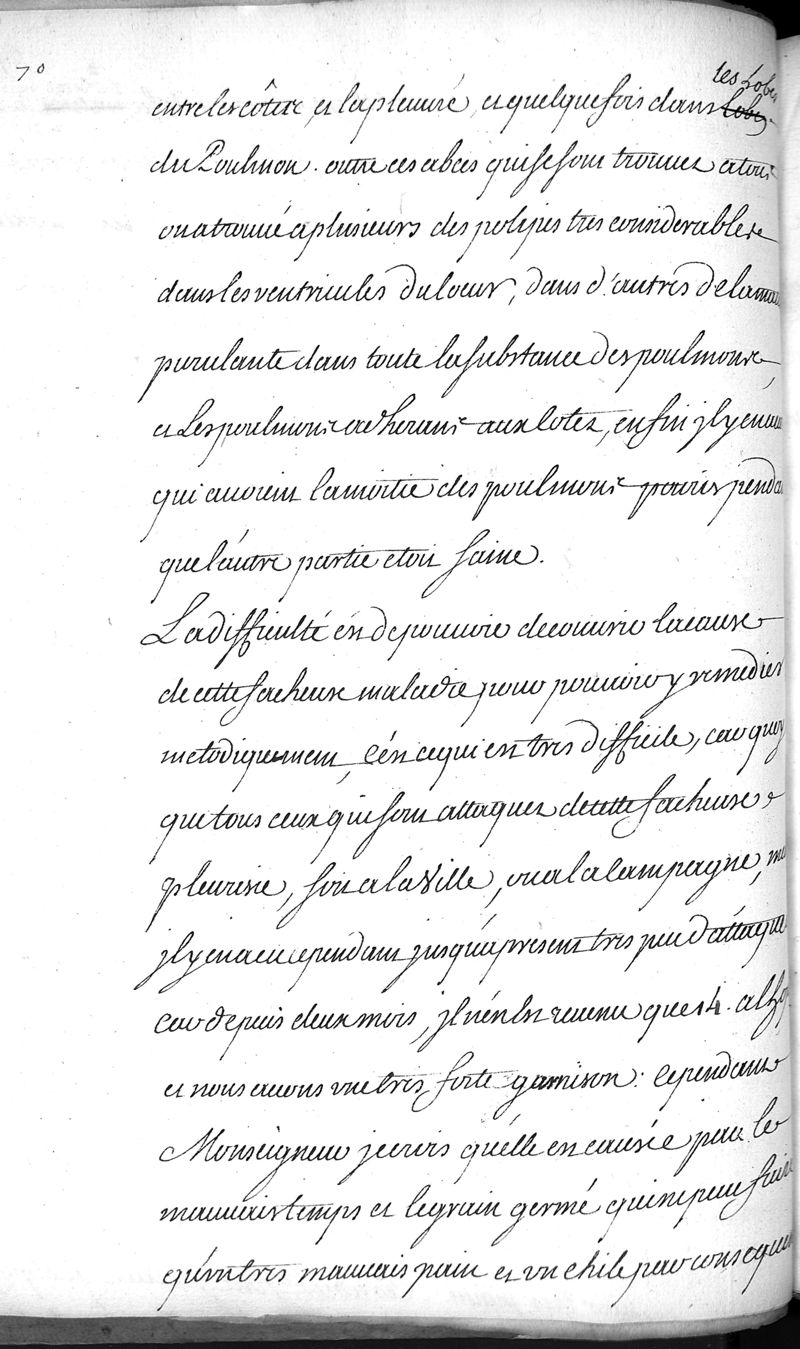 70
les Lobes
entre les côtes, et la pleuvré, et quelquefois dans lobes
du Poulmon. outre ces abces qui se sont trouvez a tous
on a trouvé a plusieurs des polipes tres considerables
dans les ventricules du Coeur, dans d'autres de la
purulante dans toute la substance des poulmons,
et Les poulmons adherans aux Cotez, enfin jl y en
qui avoient la moitié des poulmons pouris
que l'autre partie etoit saine.
La difficulté én de pouvoir decouvrir la cause
de cette facheuse maladie pour pouvoir y remedier
metodiquement, C'én ce qui est tres difficile, car quoy
que tous ceux qui sont attaquez de cette facheuse
pleuresie, soit a la Ville, ou a la Campagne,
jl y en a eu cependant jusqu'a present tres peu d'attaqué
car depuis deux mois, jl n'én est revenu que 14. a
et nous avons vne tres forte garnison: Cependant
Monseigneur je crois qu'élle en causée par le
mauvais temps et le grain germé qui ne peut faire
qu'vn tres mauvais pain et vn chile par